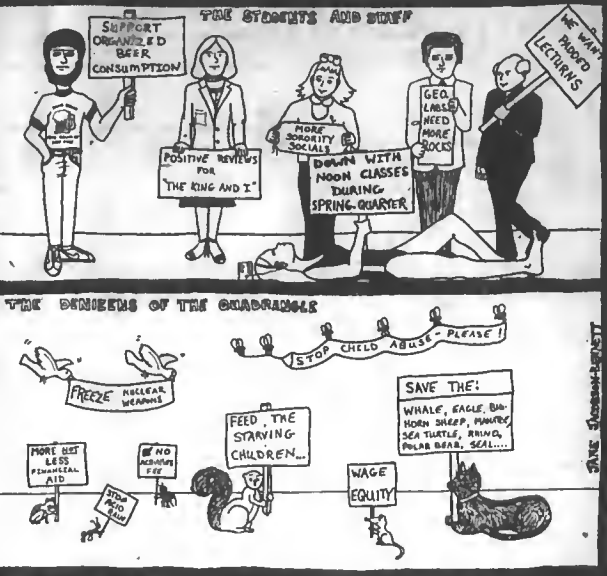 THE STUDENTS AND STAFF
SUPPORT
ORGANIZED
BEER
CONSUMPTION
POSITIVE REVIEWS
FOR
"THE KING AND I"
MORE
SORORITY
SOCIALS
DOWN WITH
NOON CLASSES
DURING
SPRING QUARTER
GEO.
LABS
NEED
MORE
ROCKS
WE WANT
PADDED
LECTURNS
THE DENIZENS OF THE QUADRANGLE
FREEZE NUCLEAR
WEAPONS
STOP CHILD ABUSE - PLEASE!
MORE NOT
LESS
FINANCIAL
AID
STOP
ACID
RAIN
NO
ACTIVITIES
FEE
FEED THE
STARVING
CHILDREN...
WAGE
EQUITY
SAVE THE:
WHALE, EAGLE, BIG-
HORN SHEEP, MANATEE,
SEA TURTLE, RHINO,
POLAR BEAR, SEAL....
JANE